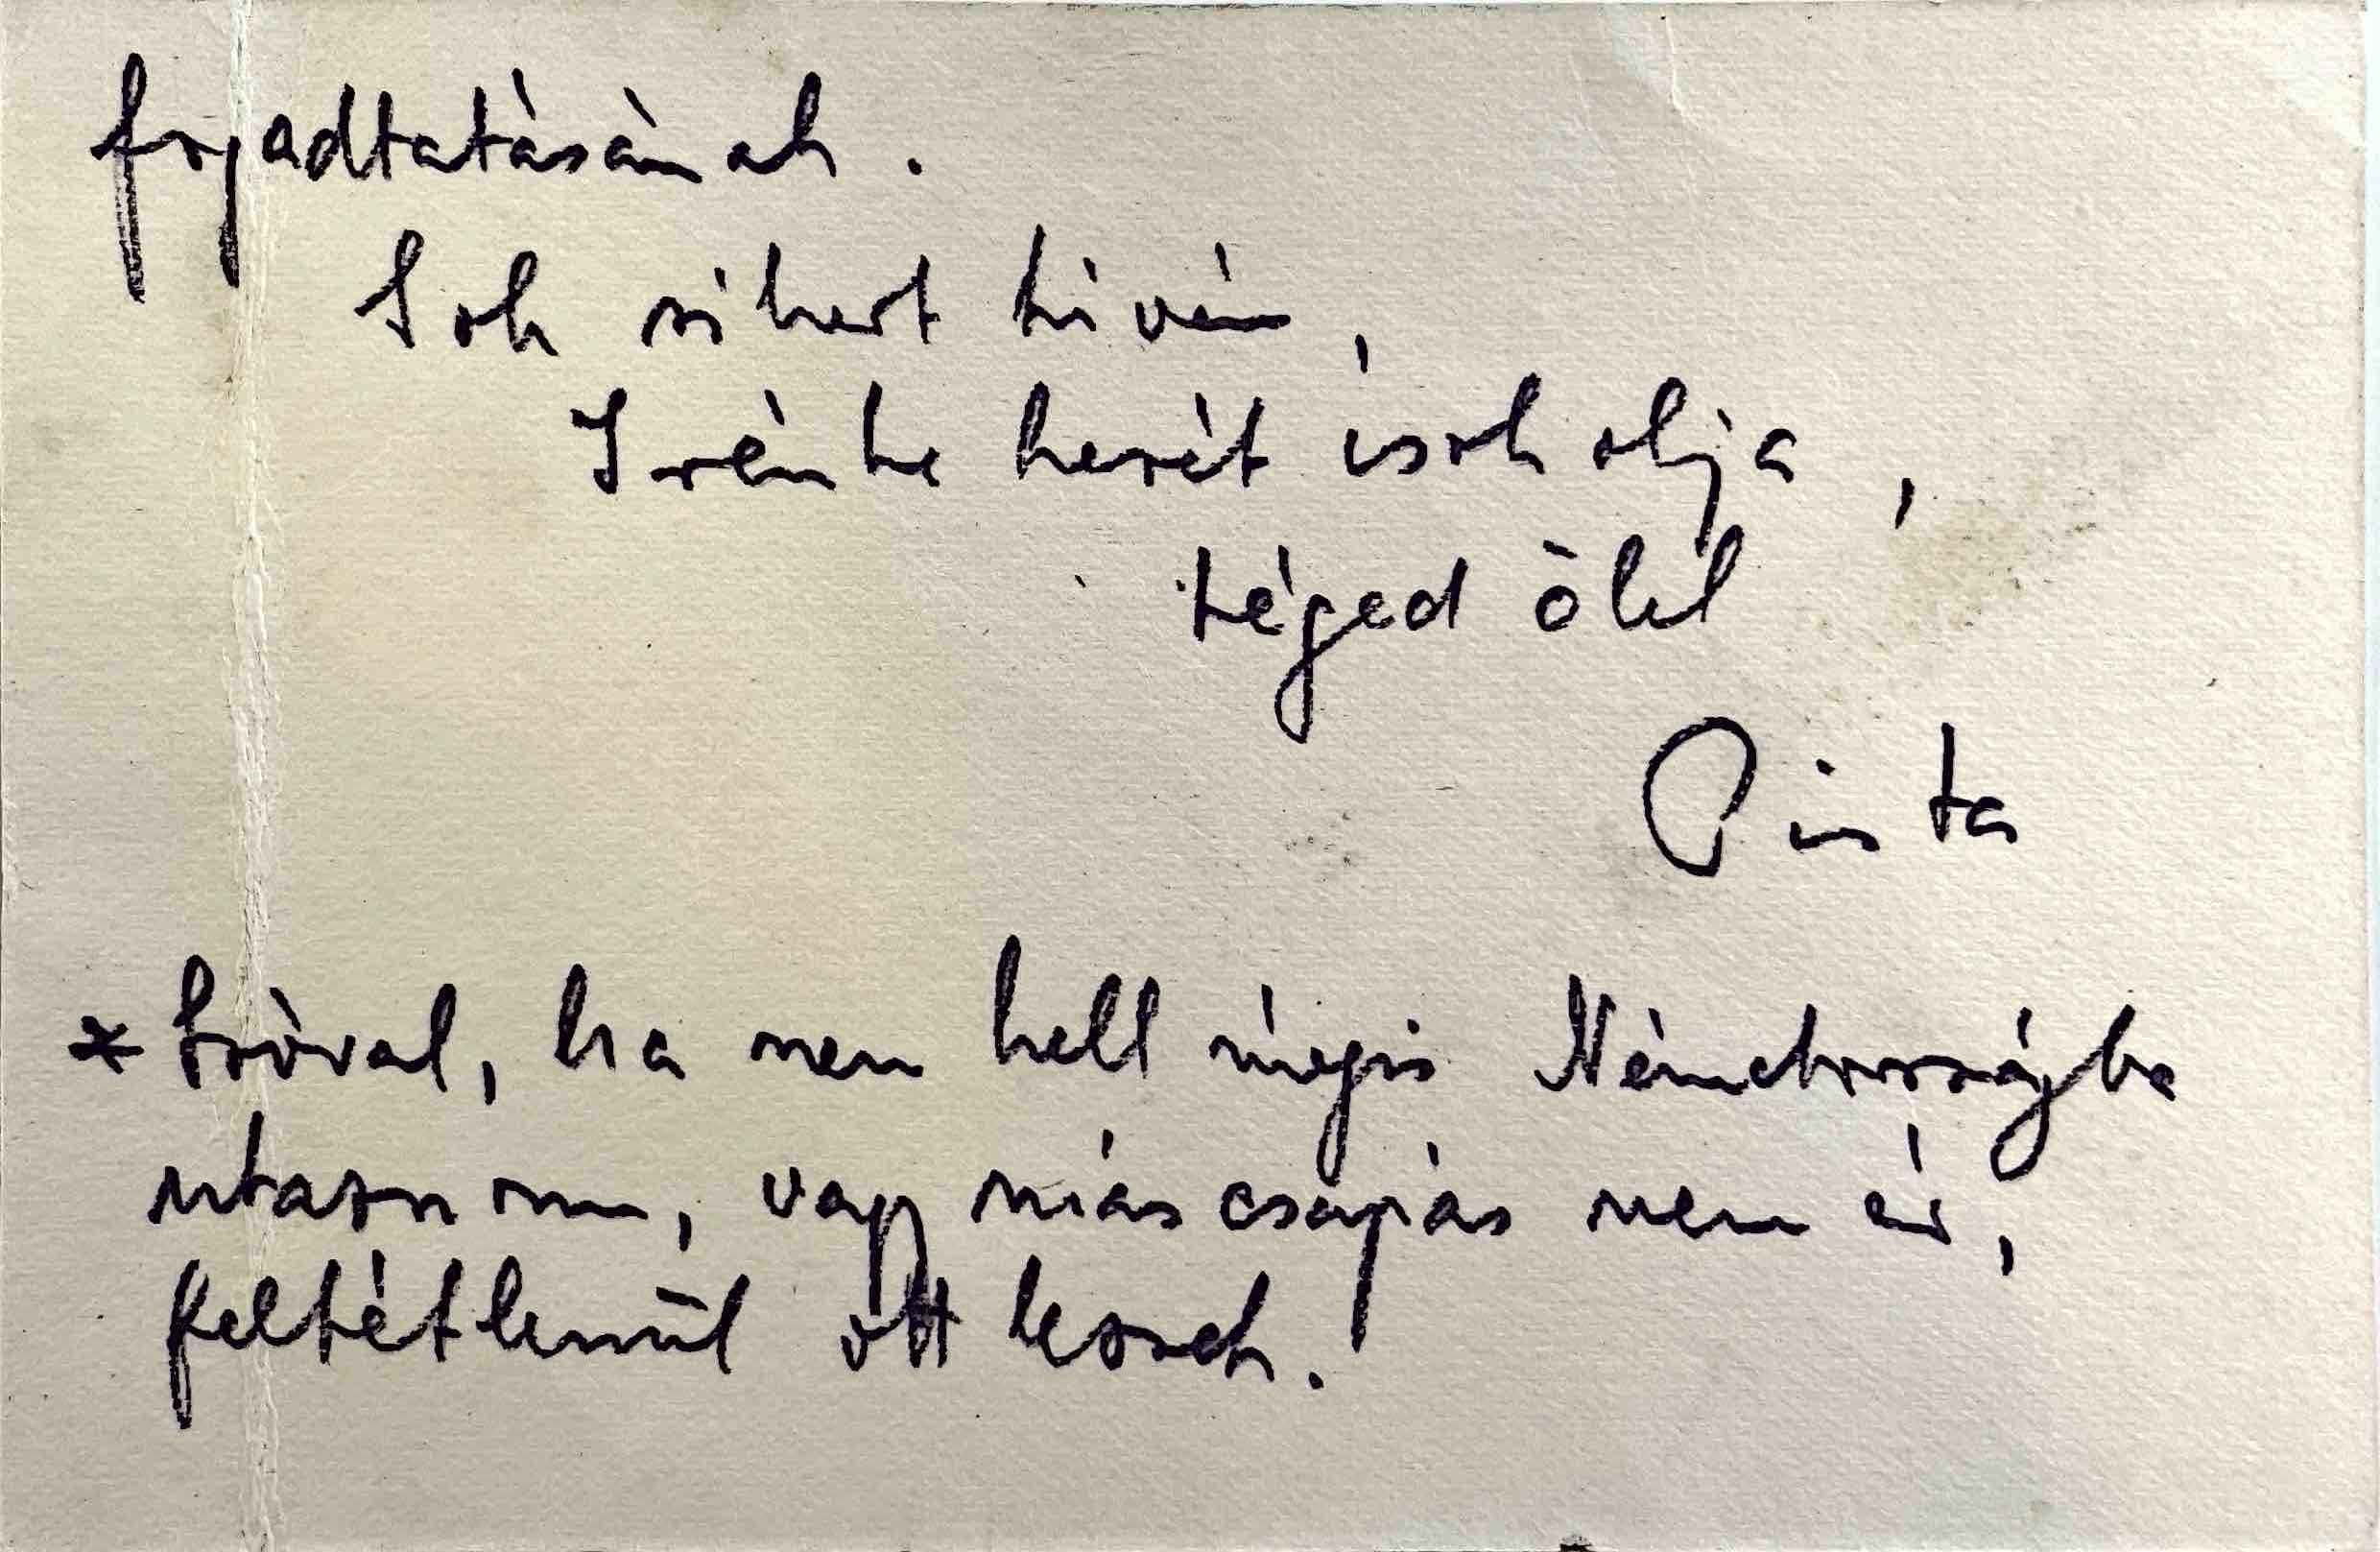 fogadtatásának.
Sok sikert kíván,
Irénke kezét csókolja,
téged ölel
Pista
* Szóval, ha nem kell mégis Németországba
utaznom, vagy más csapás nem ér,
feltétlenül ott leszek.